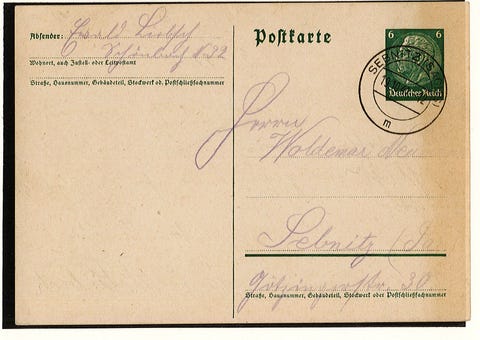 Absender: Ewald
Schönbach N. 22
Wohnort, auch Zustell- oder Leitpostamt
Straße, Hausnummer, Gebäudeteil, Stockwerk od. Postschließfachnummer
Postkarte
6 6
Deutsches Reich
SEBNITZ
m
Herrn
Woldemar
Sebnitz
Götzingerstr. 30
Straße, Hausnummer, Gebäudeteil, Stockwerk oder Postschließfachnummer